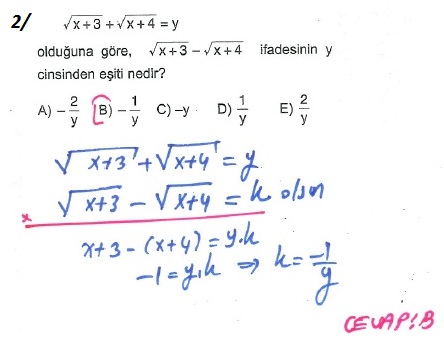 2/ √x+3 + √x+4 = y
olduğuna göre, √x+3 − √x+4 ifadesinin y
cinsinden eşiti nedir?
A) −2/y B) −1/y C) −y D) 1/y E) 2/y
√x+3 + √x+4 = y
x √x+3 − √x+4 = k olsun
x+3 − (x+4) = y.k
−1 = y.k ⇒ k = −1/y
CEVAP: B